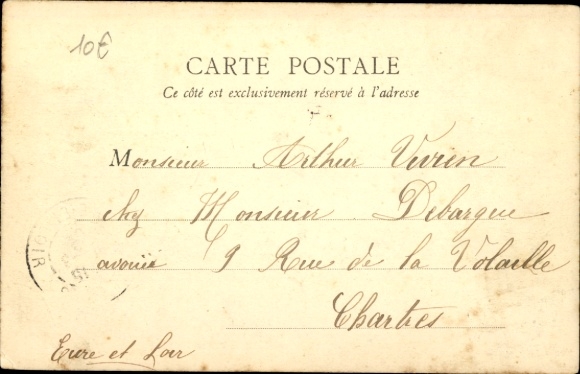 10€
CARTE POSTALE
Ce côté est exclusivement réservé à l'adresse
Monsieur Arthur Vivien
chez Monsieur Debargue
avoué 9 Rue de la Volaille
Chartres
Eure et Loir